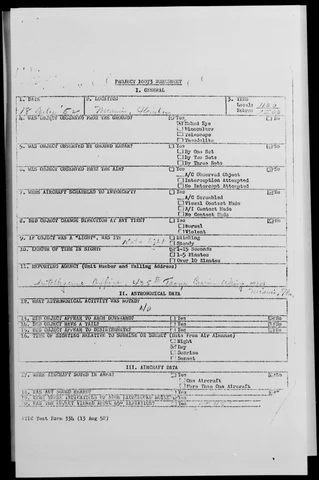 PROJECT 10073 WORKSHEET
I. GENERAL
1. DATE 2. LOCATION 3. TIME
18 July '52 Miami, Florida Local:
4. WAS OBJECT OBSERVED FROM THE GROUND? Yes No
Naked Eye
Binoculars
Telescope
Theodolite
5. WAS OBJECT OBSERVED BY GROUND RADAR? Yes No
By One Set
By Two Sets
By Three Sets
6. WAS OBJECT OBSERVED FROM THE AIR? Yes No
A/C Observed Object
Interception Attempted
No Intercept Attempted
7. WERE AIRCRAFT SCRAMBLED TO INTERCEPT? Yes No
A/C Scrambled
Visual Contact Made
A/I Contact Made
No Contact Made
8. DID OBJECT CHANGE DIRECTION AT ANY TIME? Yes No
Normal
Violent
9. IF OBJECT WAS A "LIGHT", WAS IT: Blinking
Steady
10. LENGTH OF TIME IN SIGHT: 1-15 Seconds
1-5 Minutes
Over 10 Minutes
11. REPORTING AGENCY (Unit Number and Mailing Address)
Intelligence Officer, 435th Troop Carr. Wing
II. ASTRONOMICAL DATA
12. WHAT ASTRONOMICAL ACTIVITY WAS NOTED?
No
13. DID OBJECT APPEAR TO ARCH DOWNWARD? Yes No
14. DID OBJECT HAVE A TAIL? Yes No
15. DID OBJECT APPEAR TO DISINTEGRATE? Yes No
16. TIME OF SIGHTING RELATIVE TO SUNRISE OR SUNSET (Data From Air Almanac)
Night
Day
Sunrise
Sunset
III. AIRCRAFT DATA
17. WERE AIRCRAFT NOTED IN AREA? Yes No
One Aircraft
More Than One Aircraft
ATIC Test Form 334 (13 Aug 52)